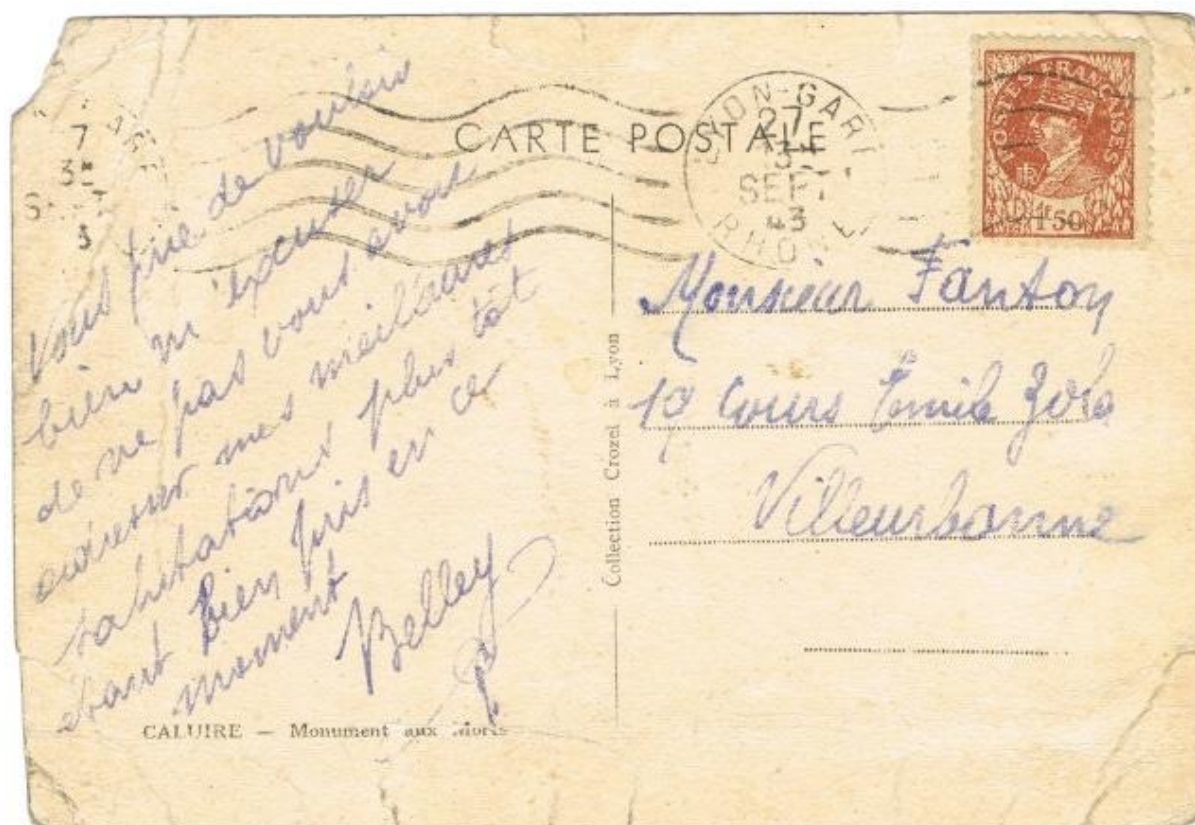 CARTE POSTALE
LYON-GARE
27
SEPT
43
RHONE
POSTES FRANÇAISES
1f50
Vous prie de vouloir
bien m'excuser
de ne pas vous avoir
adresser mes meilleures
salutations plus tôt
étant bien pris en ce
moment
Belley
CALUIRE — Monument aux Morts
Collection Crozel à Lyon
Monsieur Fanton
19 Cours Emile Zola
Villeurbanne